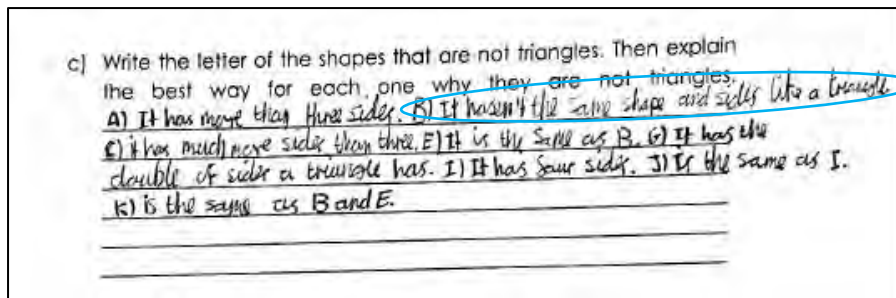 c) Write the letter of the shapes that are not triangles. Then explain
the best way for each one why they are not triangles.
A) It has more than three sides. B) It hasen't the same shape and sides like a triangle
C) it has much more sides than three. E) It is the same as B. G) It has the
double of sides a triangle has. I) It has four sides. J) Is the same as I.
K) is the same as B and E.